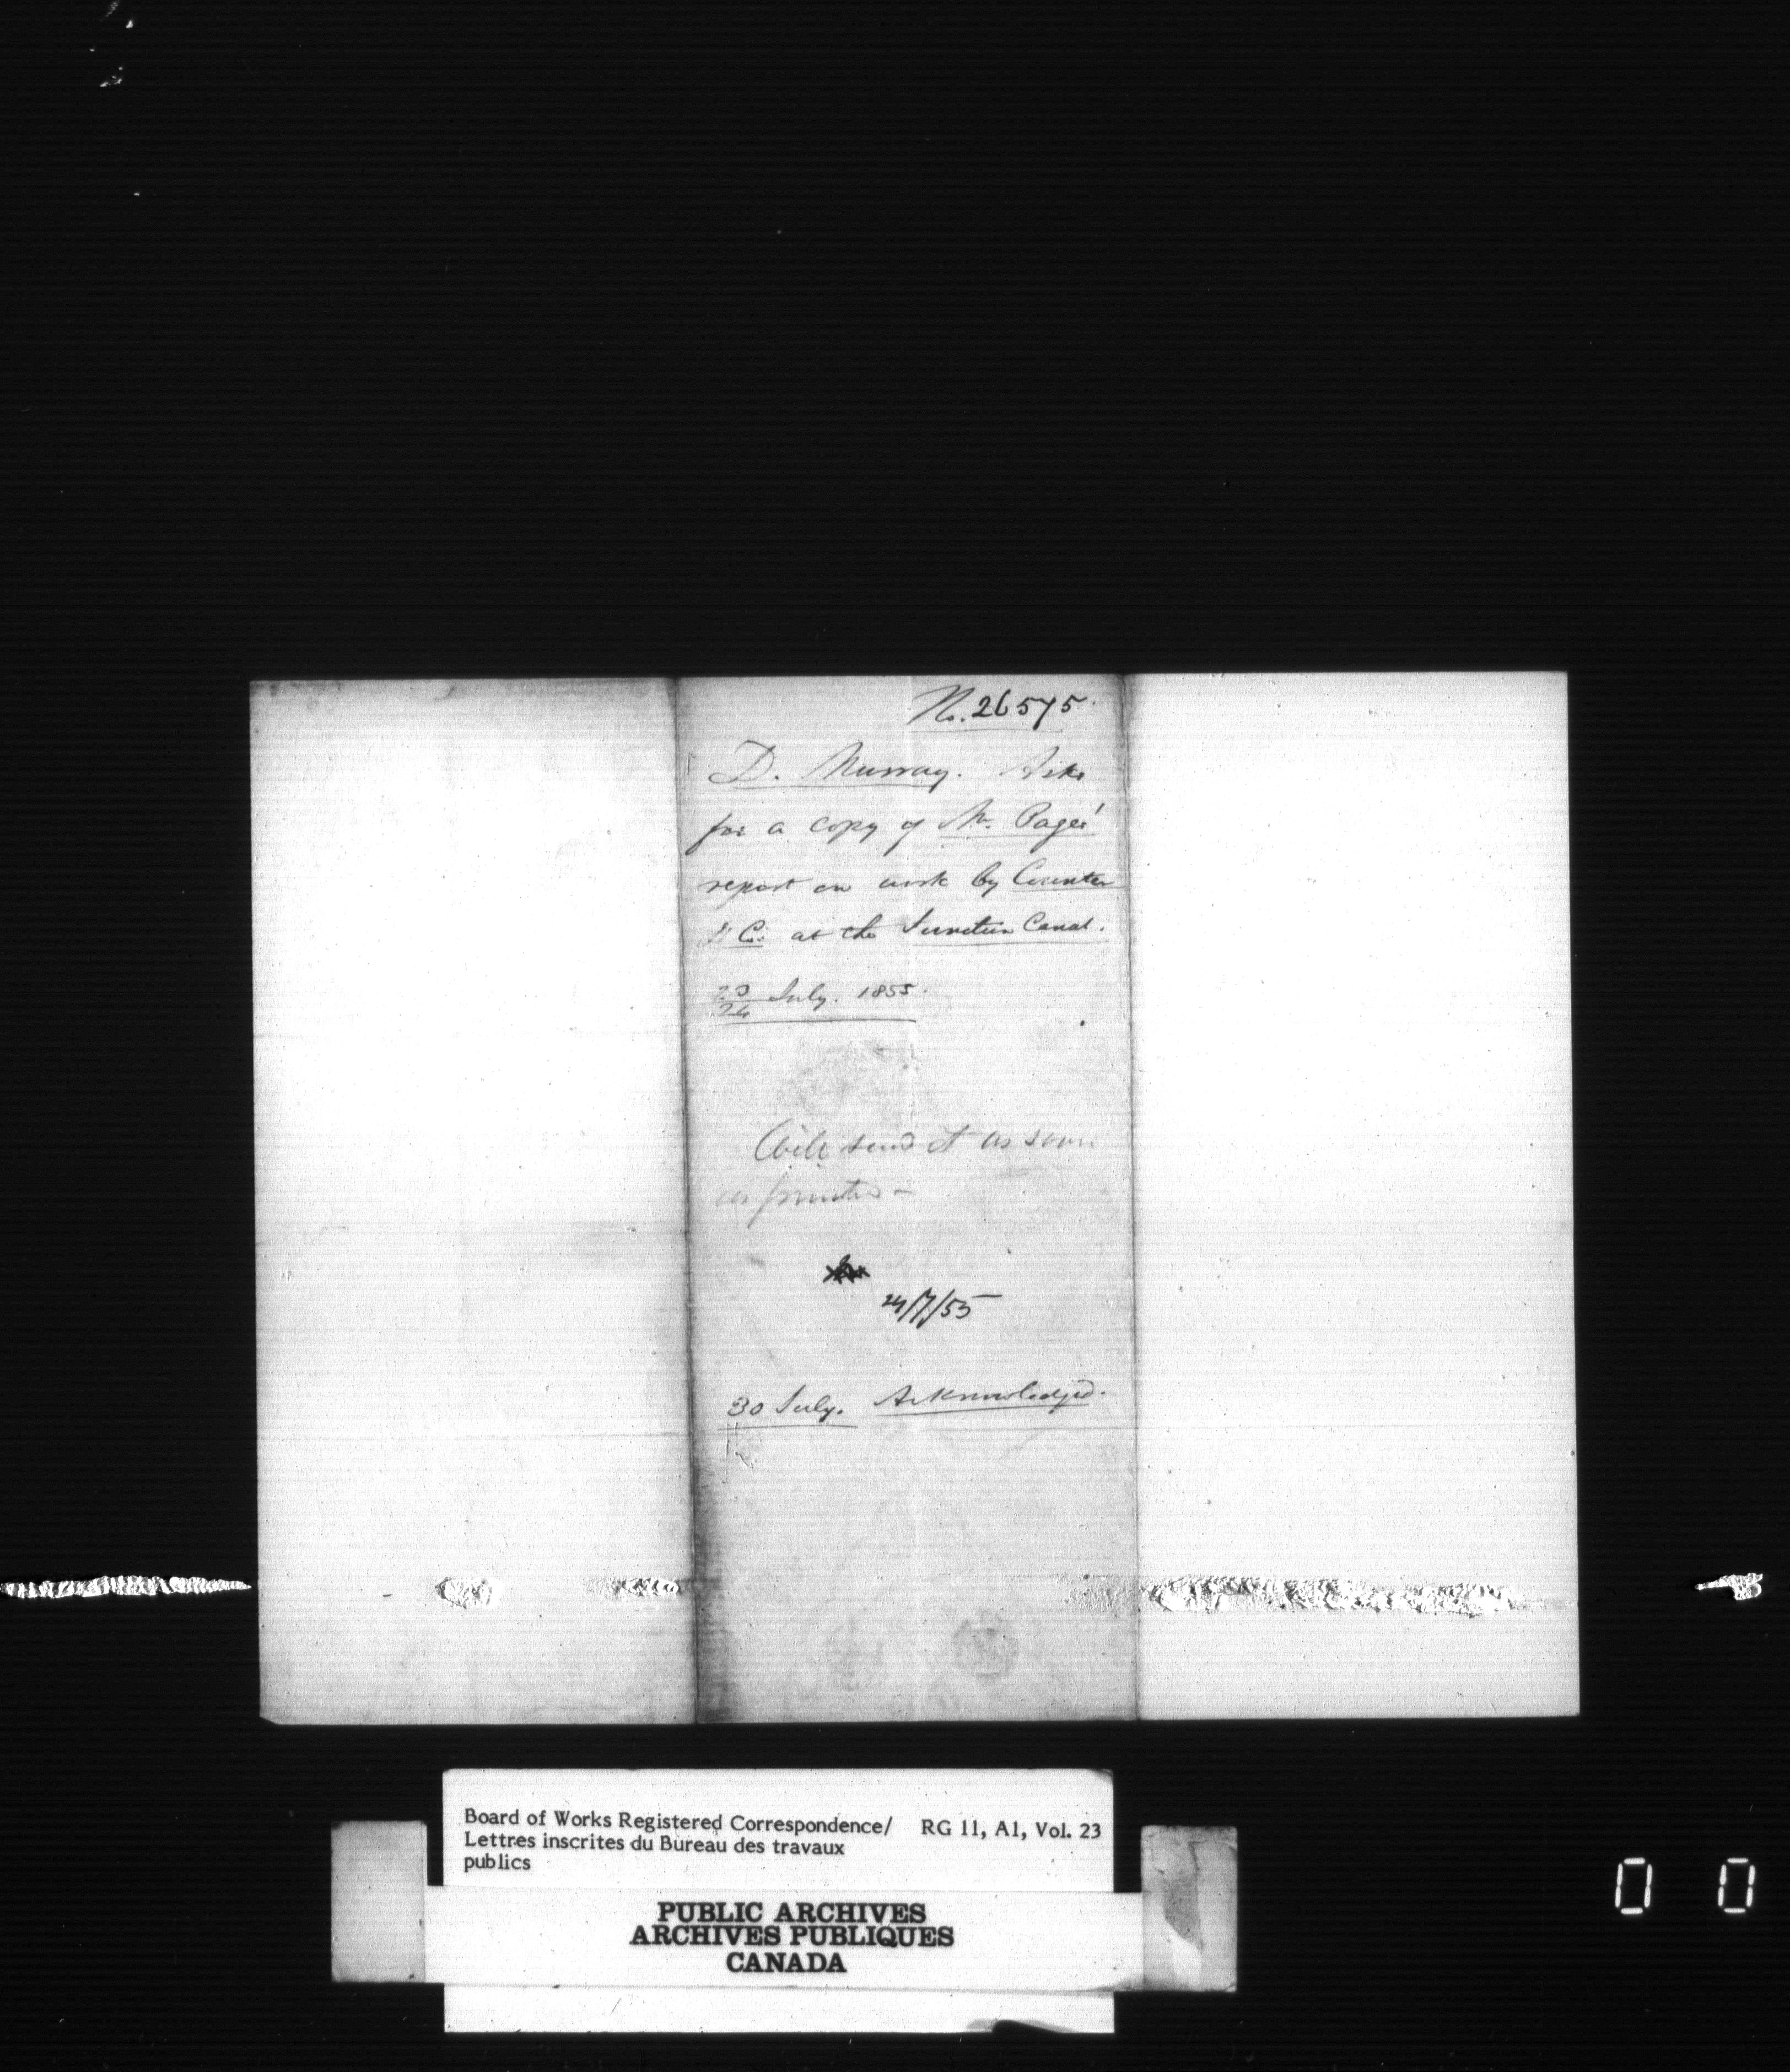 No. 26575.
D. Murray. Asks
for a copy of Mr. Page's
report on work by Counter
& Co: at the Junction Canal.
23/24 July. 1855.
Will send it as soon
as printed –
24/7/55
30 July. Acknowledged.
Board of Works Registered Correspondence/ RG 11, A1, Vol. 23
Lettres inscrites du Bureau des travaux
publics
PUBLIC ARCHIVES
ARCHIVES PUBLIQUES
CANADA
0 0